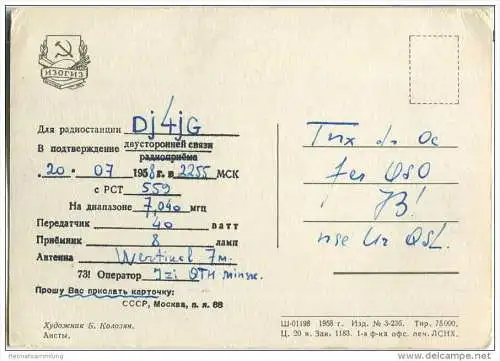 ИЗОГИЗ
Для радиостанции Dj4jG
В подтверждение двусторонней связи
радиоприёма
„20“ 07 1958 г. в 2255 МСК
с РСТ 559
На диапазоне 7,040 мгц
Передатчик 40 ватт
Приёмник 8 ламп
Антенна Wertikal 7m.
73! Оператор Izi QTH Minsk.
Прошу Вас прислать карточку:
СССР, Москва, п. я. 88
Художник Б. Колозян.
Аисты.
Tnx dr Oc
fer QSO
73!
nse Ur QSL.
Ш-01198 1958 г. Изд. № 3-235. Тир. 75000.
Ц. 20 к. Зак. 1183. 1-я ф-ка офс. печ. ЛСНХ.